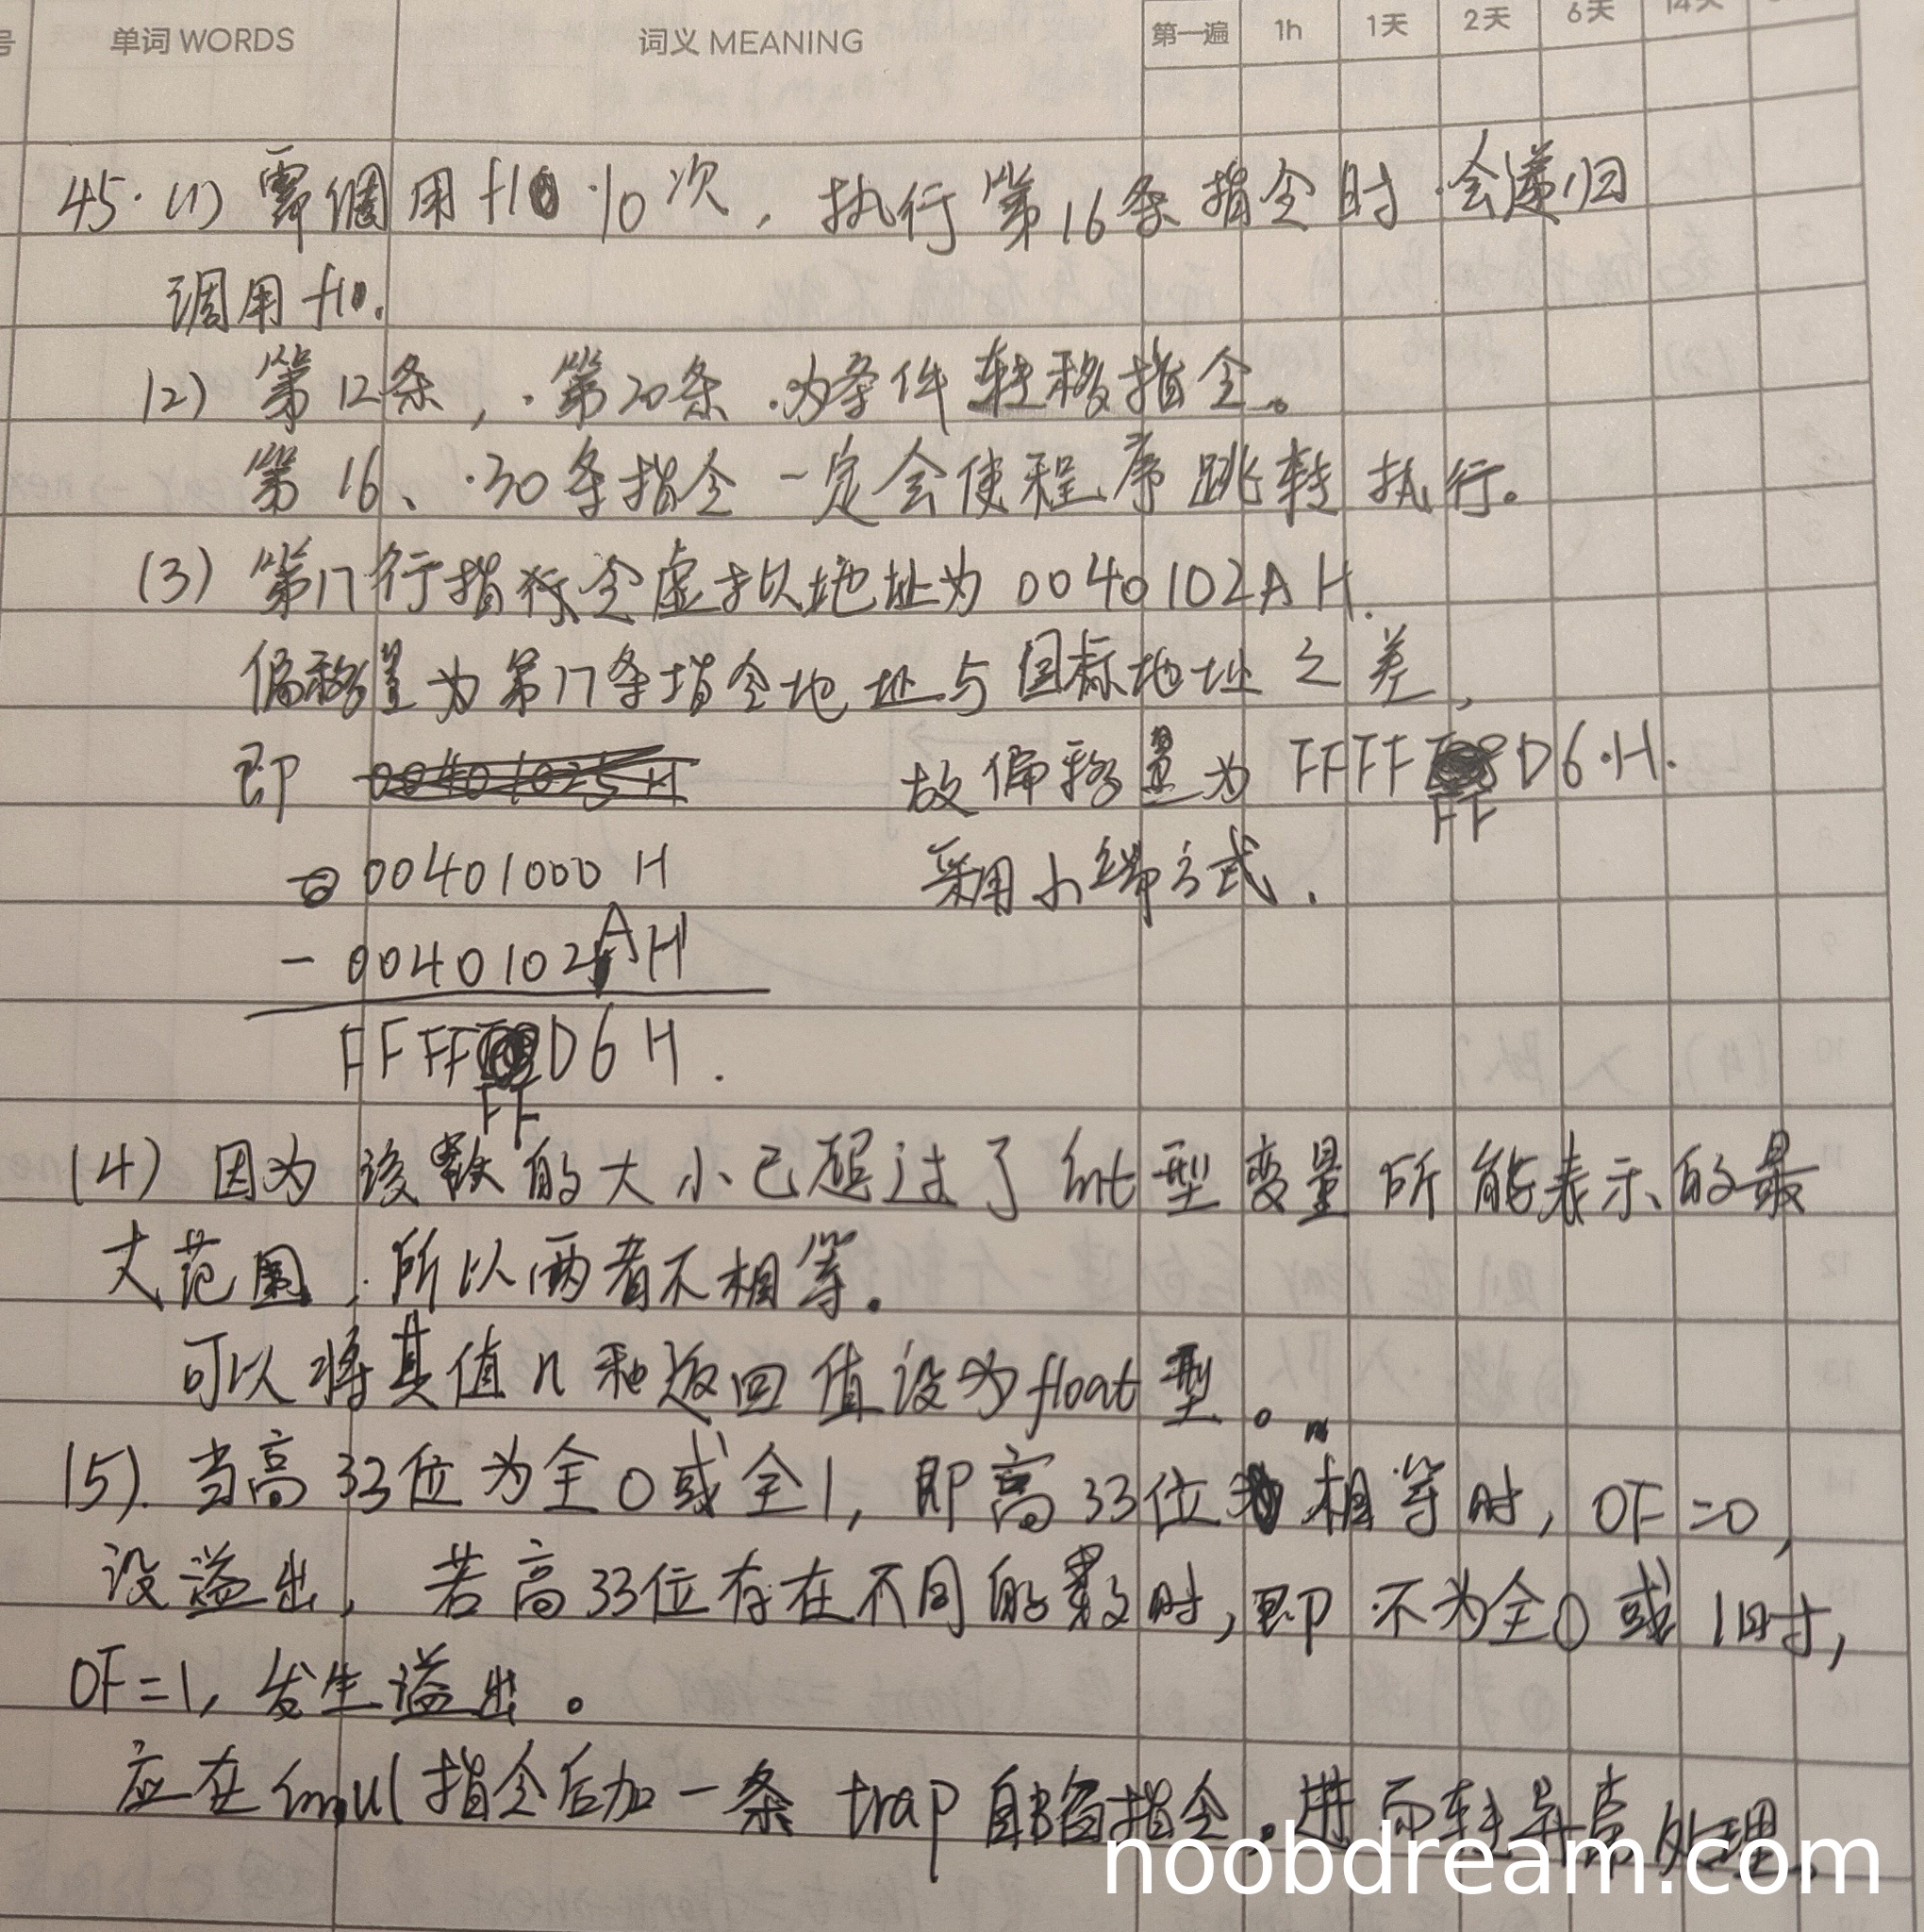 号 单词 WORDS 词义 MEANING 第一遍 1h 1天 2天 6天 14天
45. (1) 需调用 f1() 10 次, 执行第16条指令时会递归
调用 f1().
(2) 第12条, 第20条为条件转移指令。
第16、30条指令一定会使程序跳转执行。
(3) 第17行指令虚拟地址为 0040102AH.
偏移量为第17条指令地址与目标地址之差,
即 故偏移量为 FFFFFFD6H.
00401000H 采用小端方式.
- 0040102AH
FFFFFFD6H.
(4) 因为该数的大小已超过了 int 型变量所能表示的最
大范围, 所以两者不相等.
可以将其值 n 和返回值设为 float 型。
(5). 当高33位为全0或全1, 即高33位相等时, OF=0,
没溢出, 若高33位存在不同的数时, 即不为全0或1时,
OF=1, 发生溢出。
应在 imul 指令后加一条 trap 自陷指令, 进而转异常处理.
noobdream.com